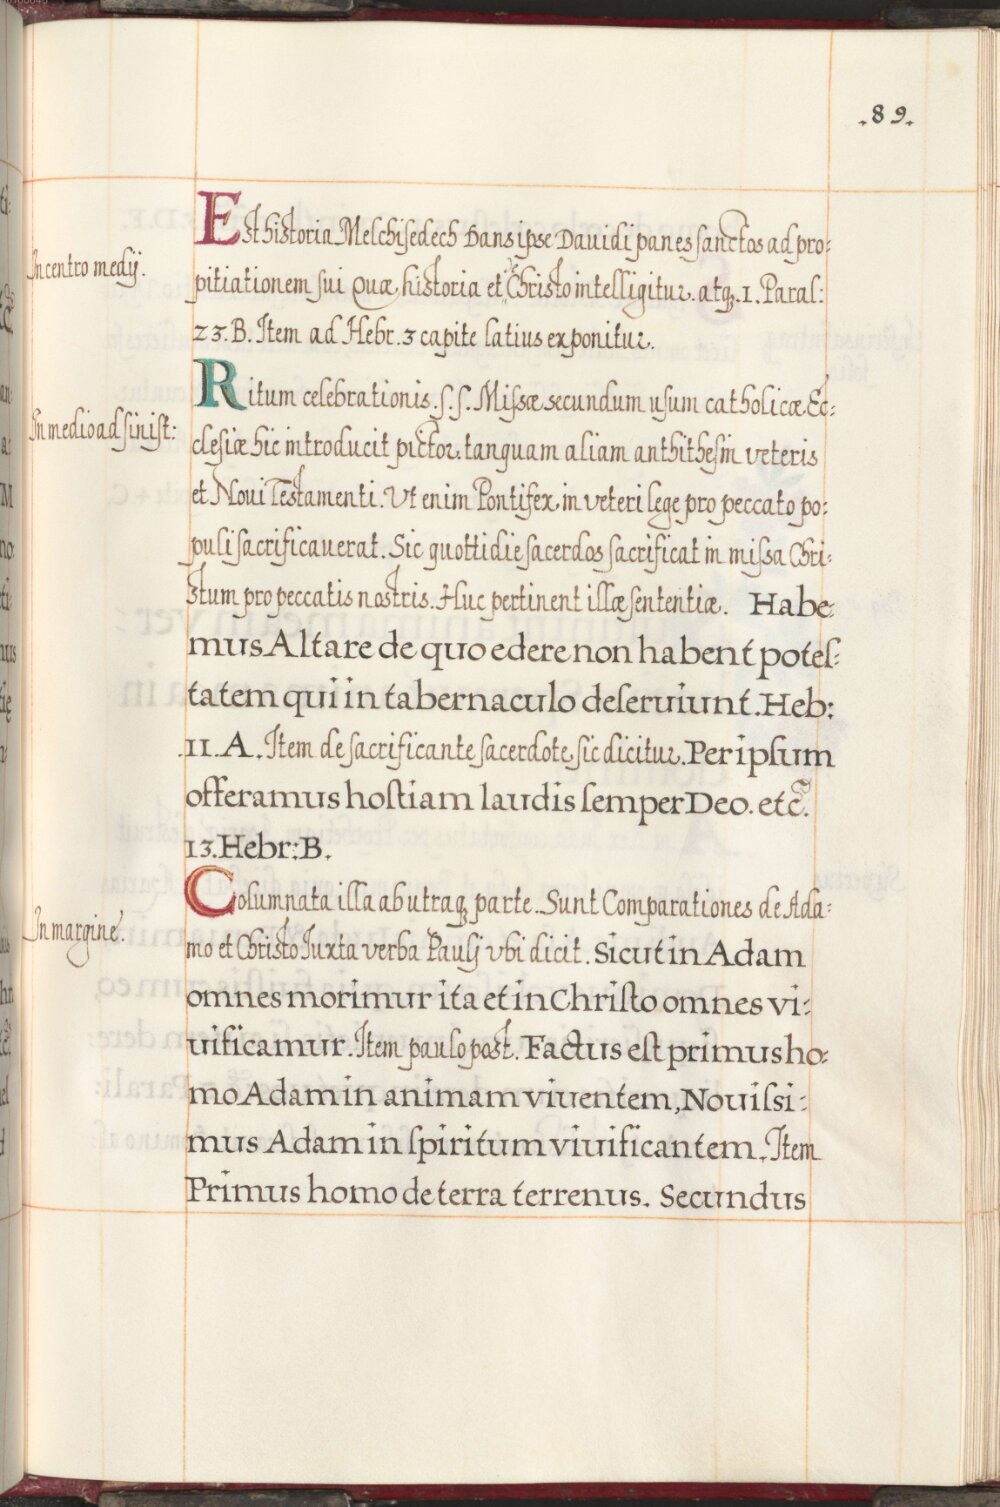 .89.
In centro medij.
Est historia Melchisedech Dans ipse Dauidi panes sanctos ad pro:
pitiationem sui Quæ, historia et Christo intelligitur. atq. 1. Paral:
23. B. Item ad Hebr. 3 capite latius exponitur.
In medio ad sinist:
Ritum celebrationis. s. s. Missæ secundum usum catholicæ Ec:
clesiæ hic introducit pictor. tanquam aliam anthithesin veteris
et Noui Testamenti. Ut enim Pontifex, in veteri lege pro peccato po:
puli sacrificauerat. Sic quottidie sacerdos sacrificat in missa Chri:
stum pro peccatis nostris. Huc pertinent illæ sententiæ. Habe:
mus Altare de quo edere non habent potes:
tatem qui in tabernaculo deserviunt. Heb:
.11. A. Item de sacrificante sacerdote, sic dicitur. Per ipsum
offeramus hostiam laudis semper Deo. etc.
13. Hebr: B.
In margine.
Columnata illa ab utraq. parte. Sunt Comparationes de Ada:
mo et Christo Iuxta verba Paulj vbi dicit. Sicut in Adam
omnes morimur ita et in Christo omnes vi:
uificamur. Item paulo post. Factus est primus ho:
mo Adam in animam viventem, Nouissi:
mus Adam in spiritum viuificantem. Item
Primus homo de terra terrenus. Secundus